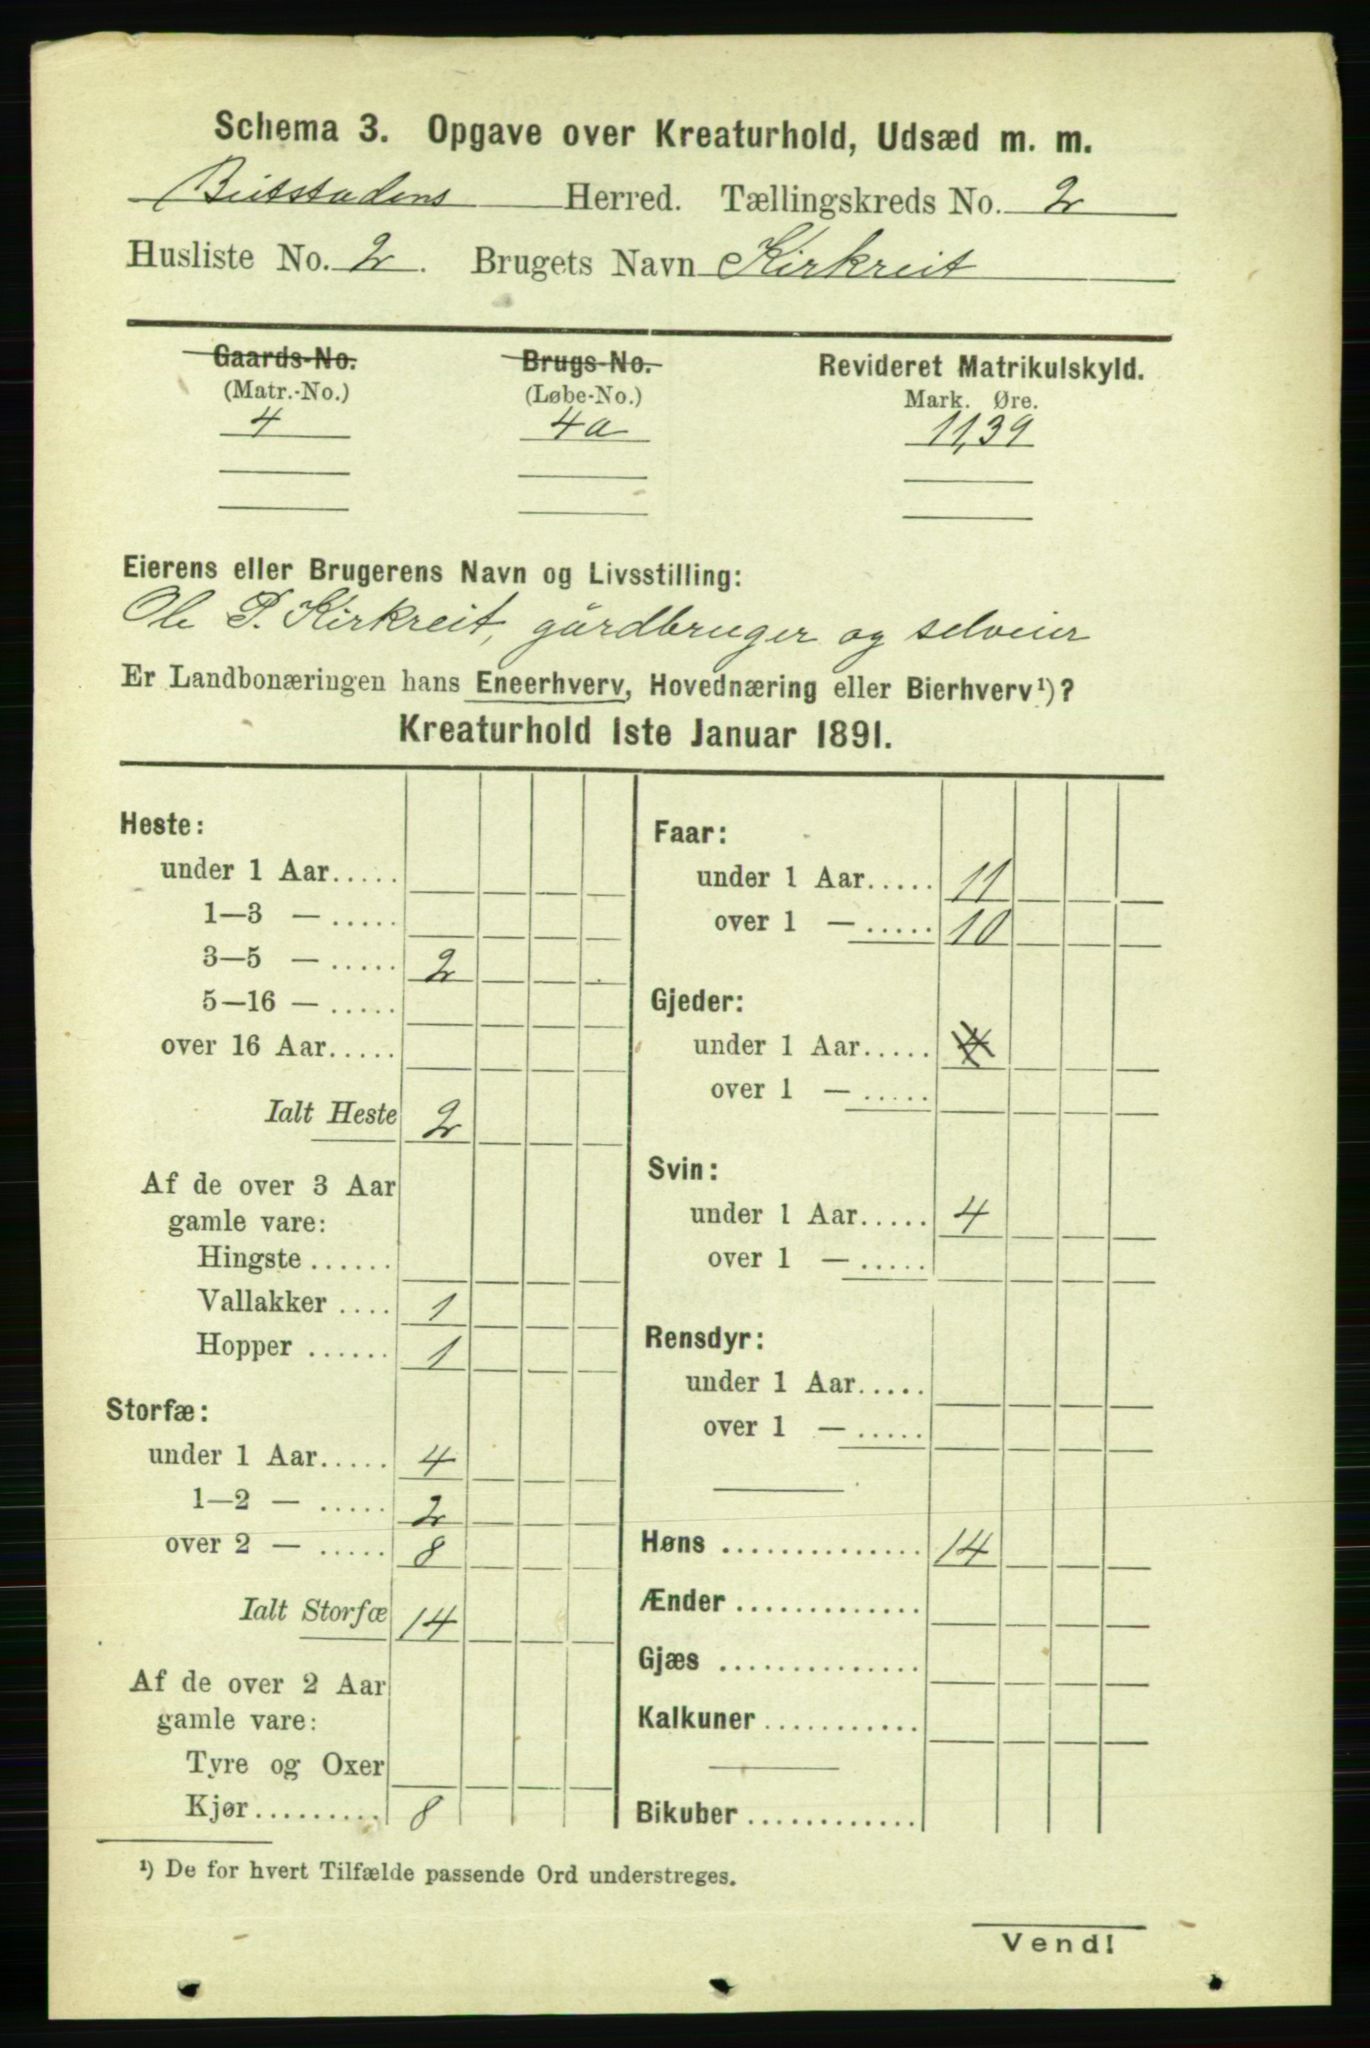 Schema 3. Opgave over Kreaturhold, Udsæd m. m.
Beitstadens Herred. Tællingskreds No. 2
Husliste No. 2. Brugets Navn Kirkreit
Gaards-No. Brugs-No. Revideret Matrikulskyld.
(Matr.-No.) (Løbe-No.) Mark. Øre.
4 4a 11,39
Eierens eller Brugerens Navn og Livsstilling:
Ole P. Kirkreit, gårdbruger og selveier
Er Landbonæringen hans Eneerhverv, Hovednæring eller Bierhverv¹)?
Kreaturhold 1ste Januar 1891.
Heste:
under 1 Aar.....
1—3 — .....
3—5 — ..... 2
5—16 — .....
over 16 Aar.....
Ialt Heste 2
Af de over 3 Aar
gamle vare:
Hingste ......
Vallakker .... 1
Hopper ...... 1
Storfæ:
under 1 Aar..... 4
1—2 — ..... 2
over 2 — ..... 8
Ialt Storfæ 14
Af de over 2 Aar
gamle vare:
Tyre og Oxer
Kjør......... 8
Faar:
under 1 Aar..... 11
over 1 — ..... 10
Gjeder:
under 1 Aar.....
over 1 — .....
Svin:
under 1 Aar..... 4
over 1 — .....
Rensdyr:
under 1 Aar.....
over 1 — .....
Høns .............. 14
Ænder .............
Gjæs ..............
Kalkuner ...........
Bikuber .............
¹) De for hvert Tilfælde passende Ord understreges.
Vend!